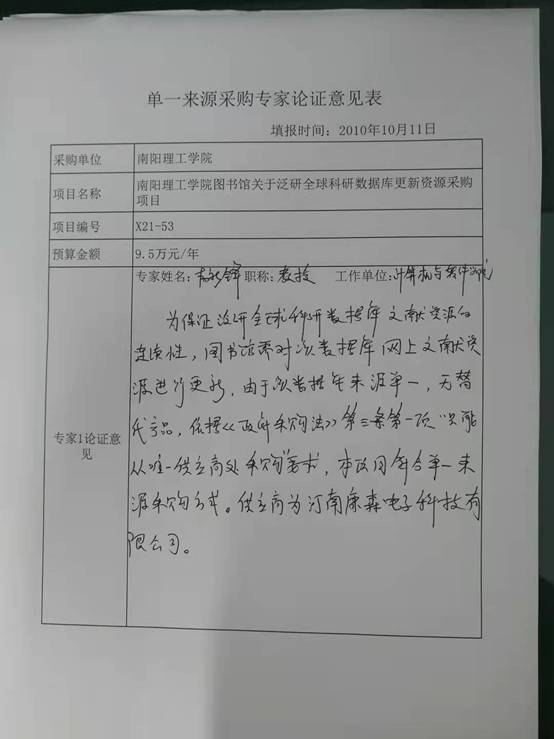 单一来源采购专家论证意见表
填报时间：2010年10月11日
采购单位 南阳理工学院
项目名称 南阳理工学院图书馆关于泛研全球科研数据库更新资源采购
项目
项目编号 X21-53
预算金额 9.5万元/年
专家姓名： 职称：教授 工作单位：计算机与软件学院
专家1论证意
见
为保证泛研全球科研数据库文献资源的
连续性，图书馆需对该数据库网上文献资
源进行更新，由于该数据库来源单一，无替
代产品，依据《政府采购法》第三条第一项“只能
从唯一供应商处采购”要求，本项目符合单一来
源采购方式。供应商为河南康森电子科技有
限公司。